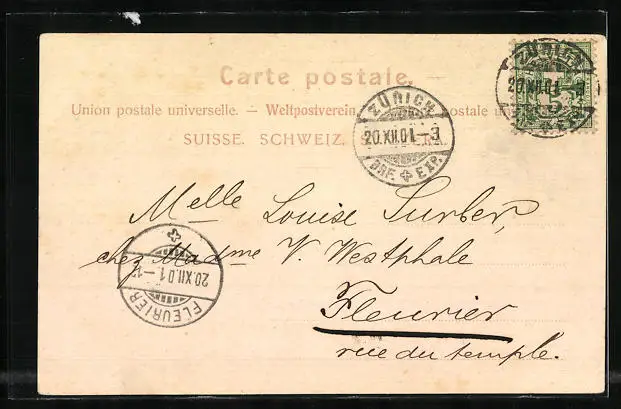 Carte postale.
Union postale universelle. — Weltpostverein postale un
SUISSE. SCHWEIZ. S
ZÜRICH
20.XII.01.-3
BRF. EXP.
ZÜRICH
20.XII.01
Melle Louise Surber,
chez Madme V. Westphale
Fleurier
rue du temple.
20.XII.01.-1
FLEURIER